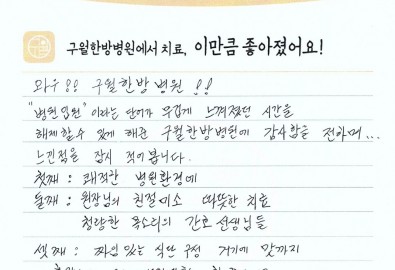 구월한방병원에서 치료, 이만큼 좋아졌어요!
와우!! 구월한방병원!!
"병원입원"이라는 단어가 무겁게 느껴졌던 시간을
해제할수 있게 해준 구월한방병원에 감사함을 전하며...
느낀점을 잠시 적어봅니다.
첫째 : 쾌적한 병원환경에
둘째 : 원장님의 친절미소 따뜻한 치료
청량한 목소리의 간호선생님들
셋째 : 짜임있는 식단 구성 거기에 맛까지